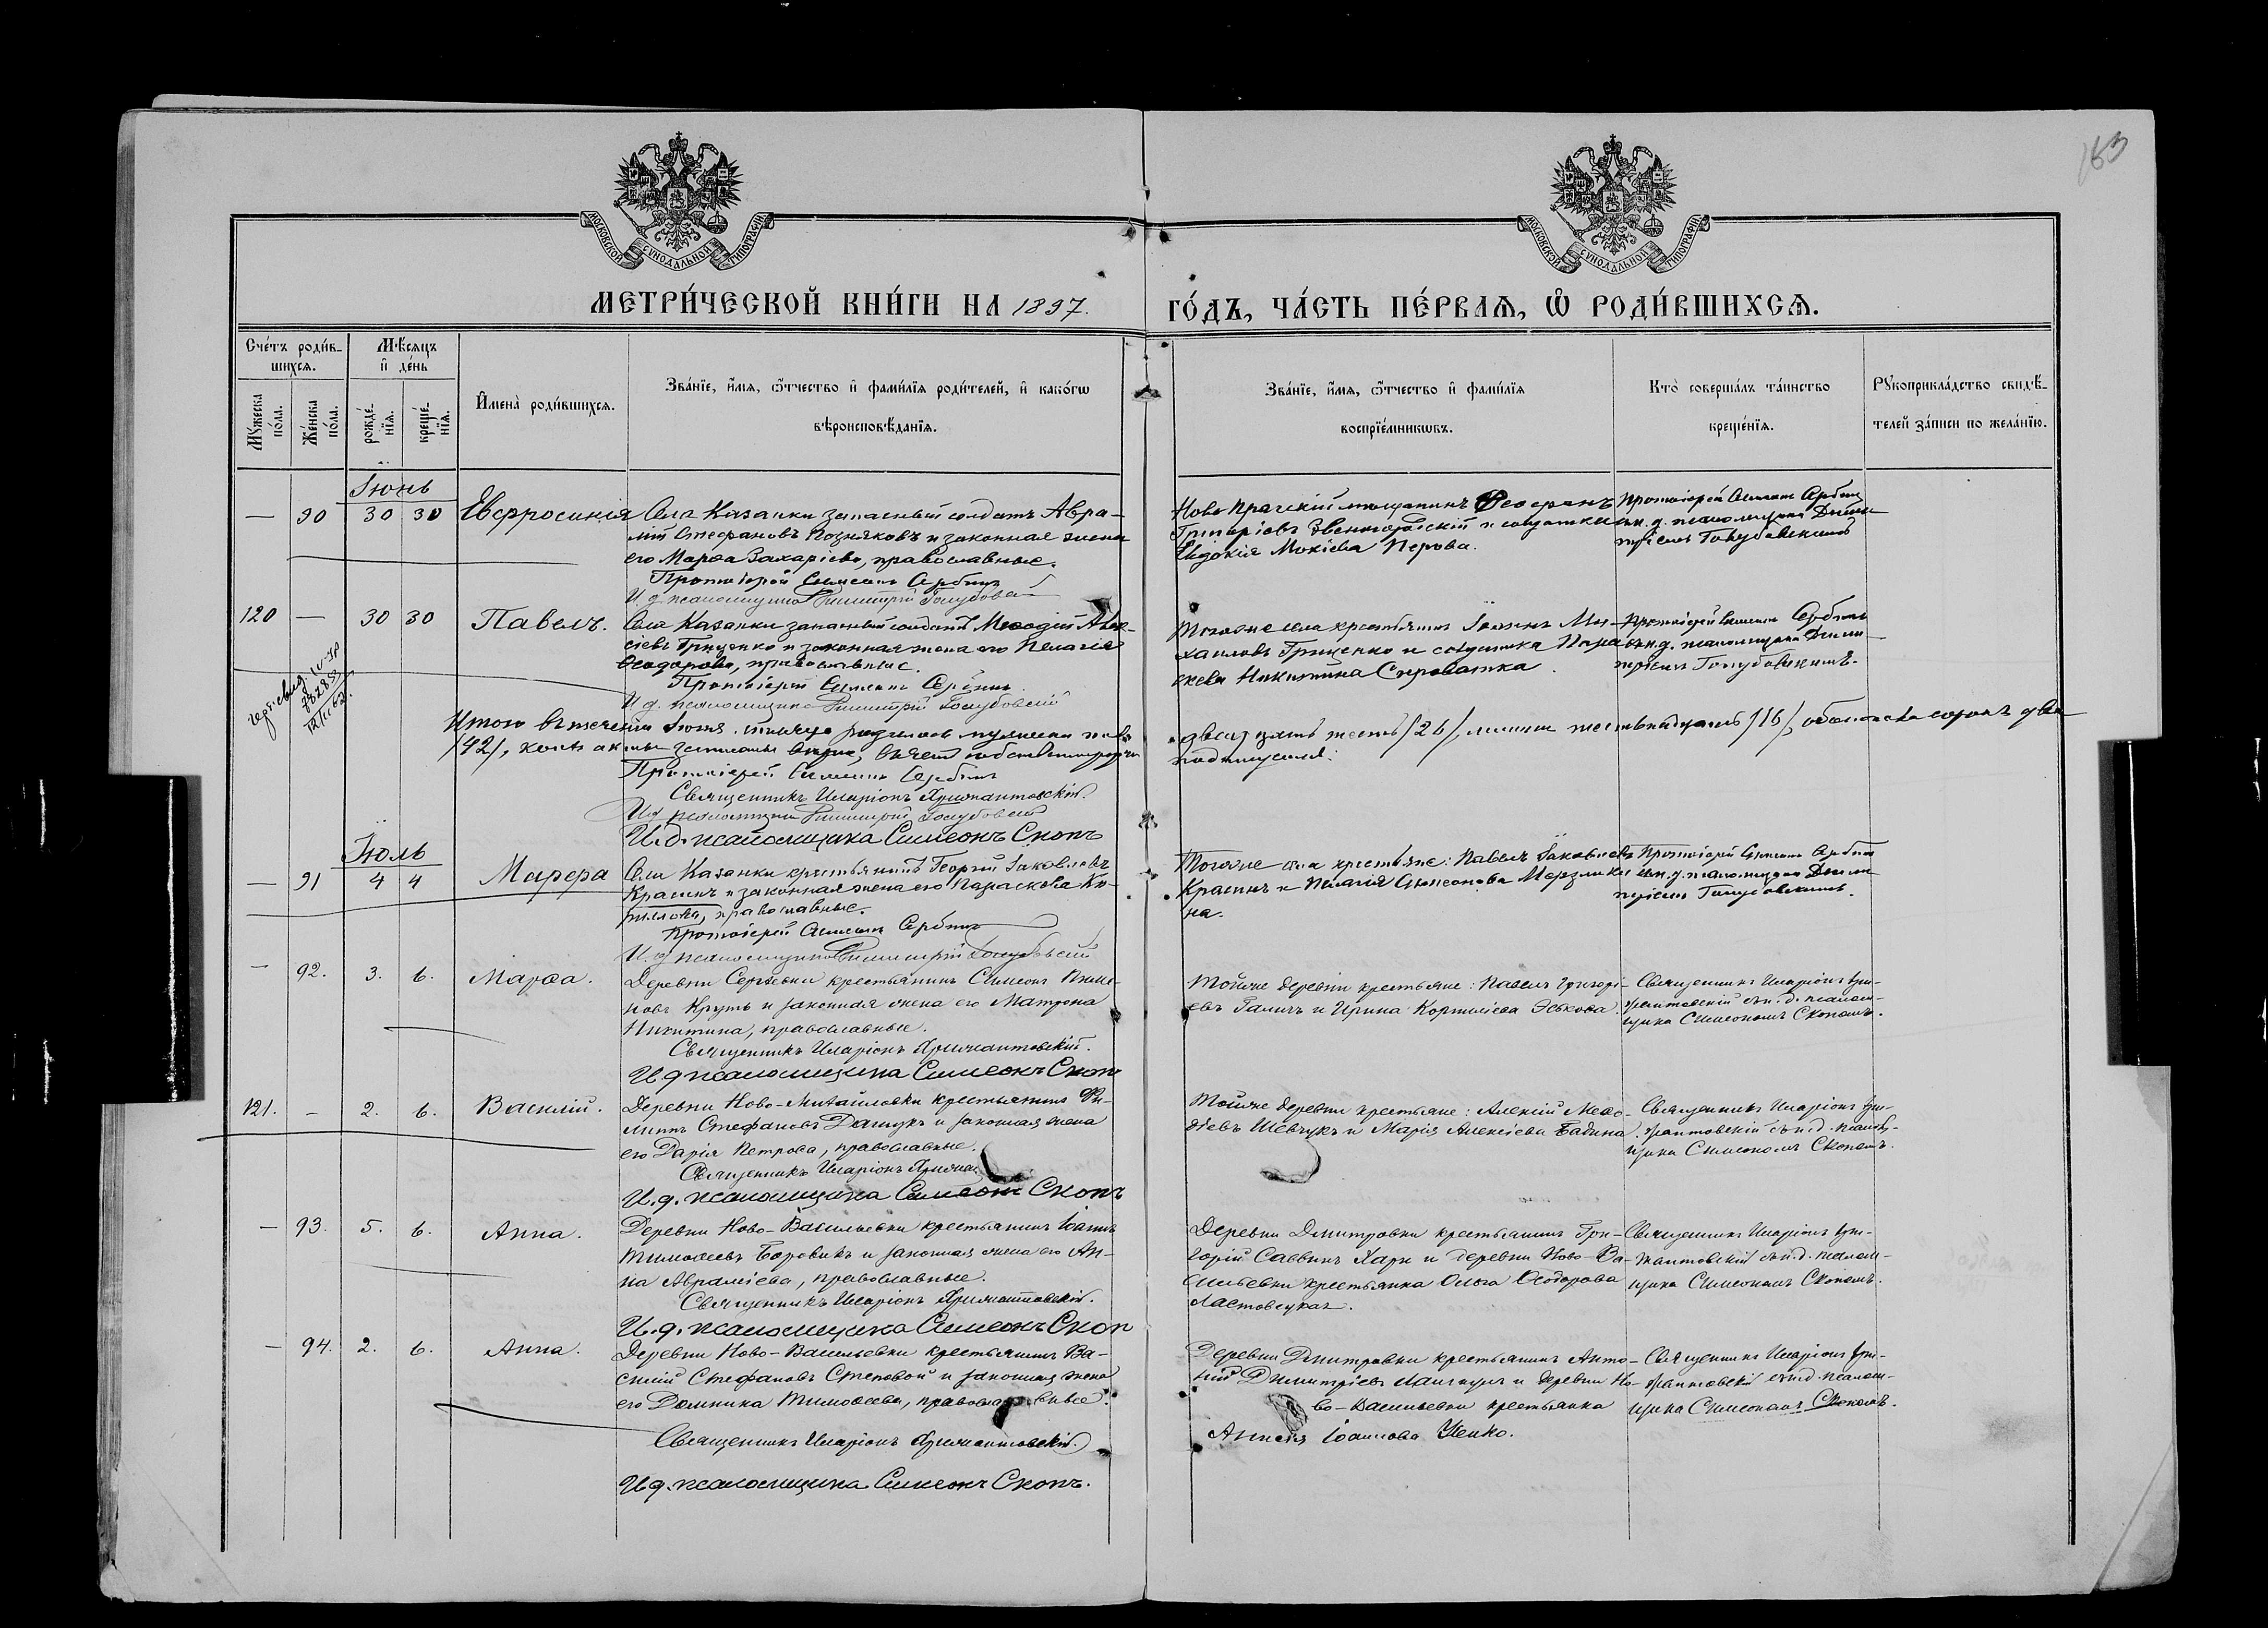 163
МОСКОВСКОЙ СѴНОДАЛЬНОЙ ТИПОГРАФІИ
МОСКОВСКОЙ СѴНОДАЛЬНОЙ ТИПОГРАФІИ
МЕТРИ́ЧЕСКОЙ КНИ́ГИ НА 1897.
ГО́ДЪ, ЧА́СТЬ ПЕ́РВАЯ, Ѡ РОДИ́ВШИХСЯ.
Сче́тъ роди́в-
шихся.
Му́жеска
по́ла.
Же́нска
по́ла.
Мѣсяцъ
и҆ де́нь
рожде́-
нїя.
креще́-
нїя.
И҆мена̀ роди́вшихся.
Зва́нїе, и҆́мя, ѻ҆́тчество и҆ фами́лїя роди́телей, и҆ како́гѡ
вѣроисповѣ́данїя.
Зва́нїе, и҆́мя, ѻ҆́тчество и҆ фами́лїя
воспрїе́мникѡвъ.
Кто̀ соверша́лъ та́инство
креще́нїя.
Рꙋкоприкла́дство свидѣ́-
телей за́писи по жела́нїю.
Іюнь
— 90 30 30 Евфросинія
Села Казанки запасный солдатъ Авра-
мій Стефановъ Позняковъ и законная жена
его Марѳа Захаріева, православные.
Протоіерей Симеонъ Сербинъ
И. д. псаломщика Димитрій Голубовскій
Ново Прагскій мещанинъ Ѳеофанъ
Григоріевъ Звенигородскій и солдатка
Евдокія Мокіева Перова.
Протоіерей Симеонъ Сербинъ
съ и. д. псаломщика Дими-
тріемъ Голубовскимъ
120 — 30 30 Павелъ.
Села Казанки запасный солдатъ Меѳодій Алек-
сіевъ Гриценко и законная жена его Пелагія
Ѳеодорова, православные.
Протоіерей Симеонъ Сербинъ
И. д. псаломщика Димитрій Голубовскій
Тогоже села крестьянинъ Іоаннъ Ми-
хаиловъ Гриценко и солдатка Пара-
скева Никитина Сыроватка.
Протоіерей Симеонъ Сербинъ
съ и. д. псаломщика Дими-
тріемъ Голубовскимъ.
Итого въ теченіи Іюня мѣсяца родилось мужеска пола
двадцать шесть /26/, женска шестьнадцать /16/, обоего пола сорокъ два
/42/,
Протоіерей Симеонъ Сербинъ
Священникъ Иларіонъ
И. д. псаломщика Димитрій Голубовскій
И. д. псаломщика Симеонъ Скопъ
Іюль
— 91 4 4
Села Казанки крестьянинъ Георгій Іаковлевъ
Красинъ и законная жена его Параскева Ки-
рилова, православные.
Протоіерей Симеонъ Сербинъ
И. д. псаломщика Димитрій Голубовскій
Тогоже села крестьяне: Павелъ Іаковлевъ
Красинъ и Пелагія Симеонова Мерзлики-
на.
Протоіерей Симеонъ Сербинъ
съ и. д. псаломщика Дими-
тріемъ Голубовскимъ.
— 92. 3. 6. Марѳа.
Деревни Сергѣевки крестьянинъ Симеонъ
Круть и законная жена его Матрона
Никитина, православные.
Священникъ Иларіонъ
И. д. псаломщика Симеонъ Скопъ
Тойже деревни крестьяне: Павелъ Григорі-
евъ Галичъ и Ирина Корниліева Эськова.
Священникъ Иларіонъ
съ и. д. псалом-
щика Симеономъ Скопомъ.
121. – 2. 6. Василій.
Деревни Ново-Михайловки крестьянинъ Фи-
липпъ Стефановъ Дащукъ и законная жена
его Дарія Петрова, православные.
Священникъ Иларіонъ
И. д. псаломщика Симеонъ Скопъ
Тойже деревни крестьяне: Алексій Меѳо-
діевъ Шевчукъ и Марія Алексіева Бабина.
Священникъ Иларіонъ
съ и. д. псалом-
щика Симеономъ Скопомъ.
— 93. 5. 6. Анна.
Деревни Ново-Васильевки крестьянинъ Іоаннъ
Тимоѳеевъ Боровикъ и законная жена его Ан-
на Авраміева, православные.
Священникъ Иларіонъ
И. д. псаломщика Симеонъ Скопъ
Деревни Дмитровки крестьянинъ Гри-
горій Саввинъ Харн и деревни Ново-Ва-
сильевки крестьянка Ольга Ѳеодорова
Ластовецкая.
Священникъ Иларіонъ
съ и. д. псалом-
щика Симеономъ Скопомъ.
— 94. 2. 6. Анна.
Деревни Ново-Васильевки крестьянинъ Ва-
силій Стефановъ Степовой и законная жена
его Домника Тимоѳеева, православные.
Священникъ Иларіонъ
И. д. псаломщика Симеонъ Скопъ.
Деревни Дмитровки крестьянинъ Анто-
ній Димитріевъ и деревни Но-
во-Васильевки крестьянка
Анисія Іоаннова
Священникъ Иларіонъ
съ и. д. псалом-
щика Симеономъ Скопомъ.